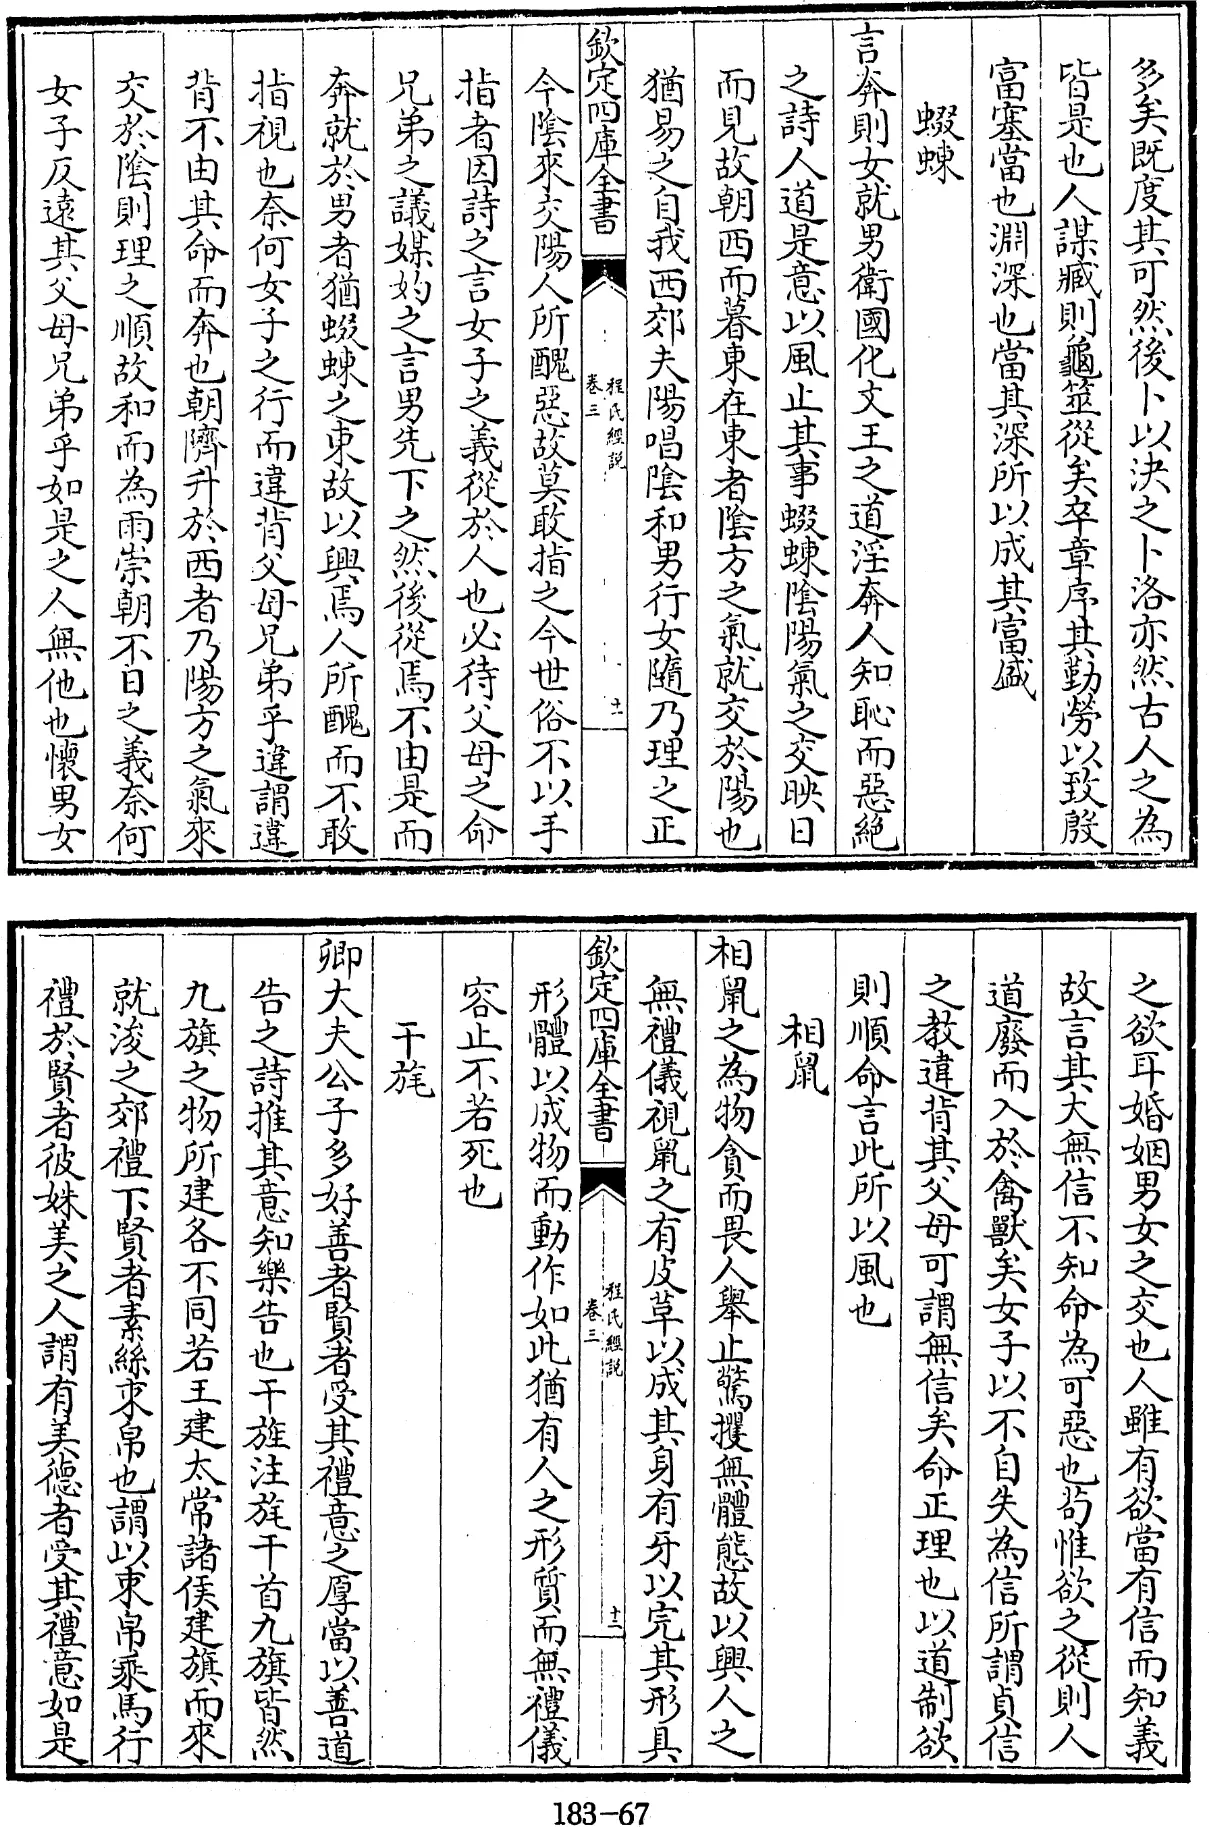 多矣既度其可然後卜以決之卜洛亦然古人之為
皆是也人謀臧則龜筮從矣卒章序其勤勞以致殷
富塞當也淵深也當其深所以成其富盛
蝃蝀
言奔則女就男衛國化文王之道淫奔人知恥而惡絶
之詩人道是意以風止其事蝃蝀陰陽氣之交映日
而見故朝西而暮東在東者陰方之氣就交於陽也
猶易之自我西郊夫陽唱陰和男行女隨乃理之正
欽定四庫全書
程氏經説
卷三
十一
今陰來交陽人所醜惡故莫敢指之今世俗不以手
指者因詩之言女子之義從於人也必待父母之命
兄弟之議媒妁之言男先下之然後從焉不由是而
奔就於男者猶蝃蝀之東故以興焉人所醜而不敢
指視也奈何女子之行而違背父母兄弟乎違謂違
背不由其命而奔也朝隮升於西者乃陽方之氣來
交於陰則理之順故和而為雨崇朝不日之義奈何
女子反遠其父母兄弟乎如是之人無他也懷男女
之欲耳婚姻男女之交也人雖有欲當有信而知義
故言其大無信不知命為可惡也茍惟欲之從則人
道廢而入於禽獸矣女子以不自失為信所謂貞信
之教違背其父母可謂無信矣命正理也以道制欲
則順命言此所以風也
相鼠
相鼠之為物貪而畏人舉止驚攫無體態故以興人之
無禮儀視鼠之有皮草以成其身有牙以完其形具
欽定四庫全書
程氏經説
卷三
十二
形體以成物而動作如此猶有人之形質而無禮儀
容止不若死也
干旄
卿大夫公子多好善者賢者受其禮意之厚當以善道
告之詩推其意知樂告也干旄注旄干首九旗皆然
九旗之物所建各不同若王建太常諸侯建旗而來
就浚之郊禮下賢者素絲束帛也謂以束帛乘馬行
禮於賢者彼姝美之人謂有美德者受其禮意如是
183-67